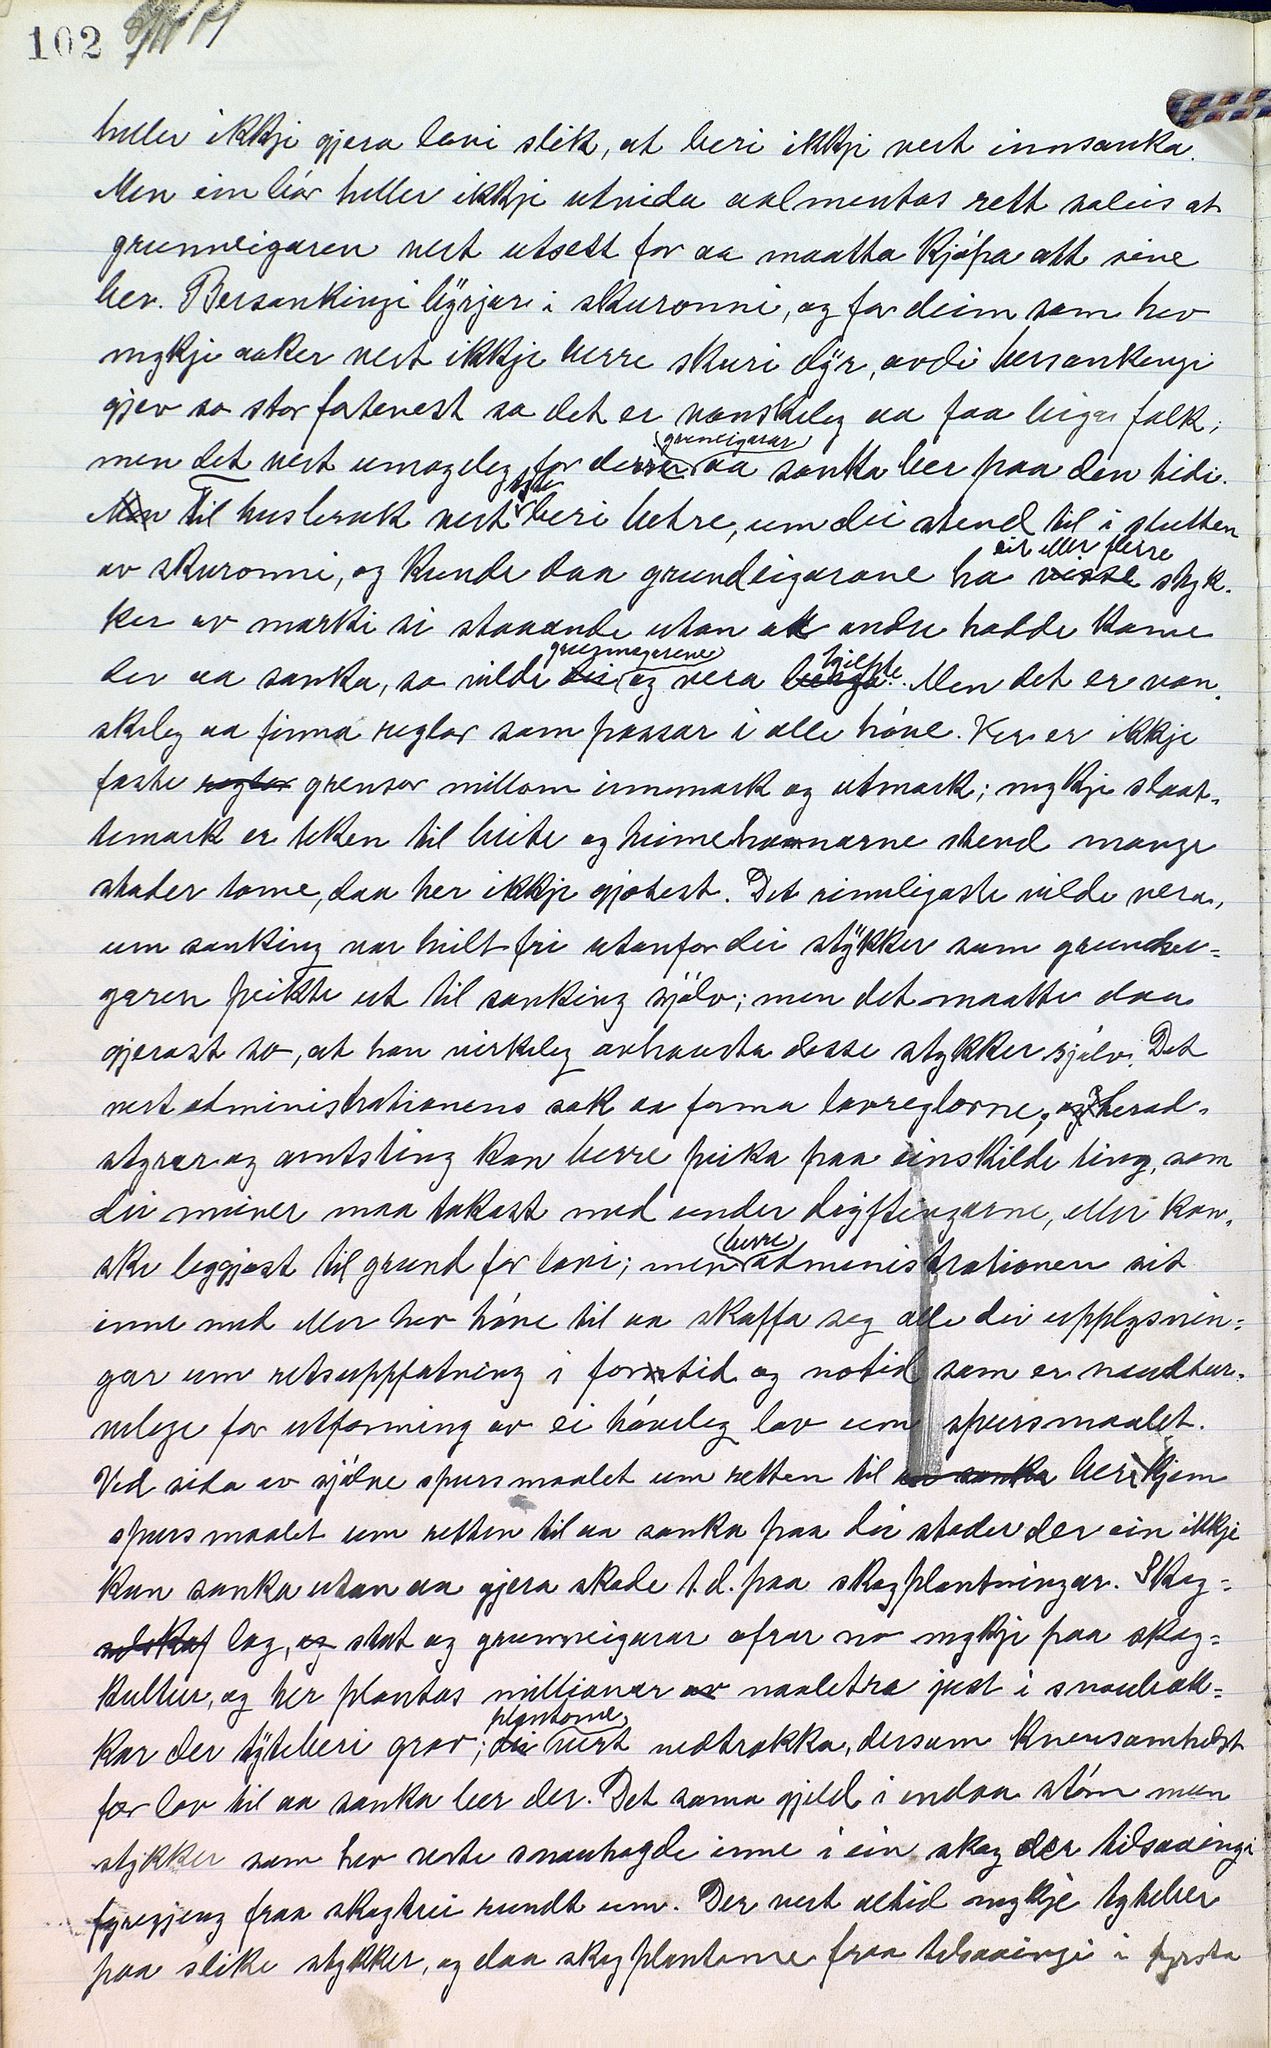 102
heller ikkje gjera lovi slik, at beri ikkje vert innsanka.
Men ein bör heller ikkje utvida aalmentas rett soleis at
grunneigaren vert utsett for aa maatta kjöpa att sine
ber. Bersankingi byrjar i skuronni, og for deim som hev
mykje aaker vert ikkje berre skuri dyr, avdi bersankingi
gjev so stor fortenest so det er vanskeleg aa faa leiga folk;
grunneigarar
men det vert umogeleg for desse aa sanka ber paa den tidi.
Men Til husbruk vert beri betre, um dei stend til i slutten
ein eller fleire
av skuronni, og kunde daa grundeigarane ha visse styk-
ker av marki si staaande utan at andre hadde kome
grunneigarane hjelpte
der aa sanka, so vilde dei og vera berga. Men det er van-
skeleg aa finna reglar som passar i alle höve. Her er ikkje
faste reglar grensor millom innmark og utmark; mykje slaat-
temark er teken til beite og heimehamnarne stend mange
stader tome, daa her ikkje gjötest. Det rimeligaste vilde vera,
um sanking var heilt fri utanfor dei stykker som grundei-
garen peikte ut til sanking sjölv; men det maatte daa
gjerast so, at han verkeleg avhausta desse stykker sjölv. Det
vert administrationens sak aa forma lovreglarne, og herad-
styrer og amtsting kan berre peika paa einskilde ting, som
dei meiner maa takast med under dryftingarne, eller kan-
berre
ske leggjast til grund for lovi; men administrationen sit
inne med eller hev höve til aa skaffa seg alle dei upplysnin-
gar um retsuppfatning i fortid og notid som er naudtur-
velege for utforming av ei höveleg lov um spursmaalet.
Ved sida av sjölve spursmaalet um retten til aa sanka ber kjem
spursmaalet um retten til aa sanka paa dei stader der ein ikkje
kan sanka utan aa gjera skade t.d. paa skogplantningar. Skog-
selskap lag, og stat og grunneigarar ofrar no mykje paa skog-
kultur, og her plantas millionar av naaletre just i snaubak-
plantorne
kar der tyteberi grov; dei vert nedtrakka, dersom kvensomhelst
fær lov til aa sanka ber der. Det sama gjeld i endaa störr mun
stykker som hev vorte snauhogde inne i ein skog der tilsaaingi
fyregjeng fraa skogtrei rundt um. Der vert altid mykje tyteber
paa slike stykker, og daa skogplantorne fraa tilsaaingi i fyrsta